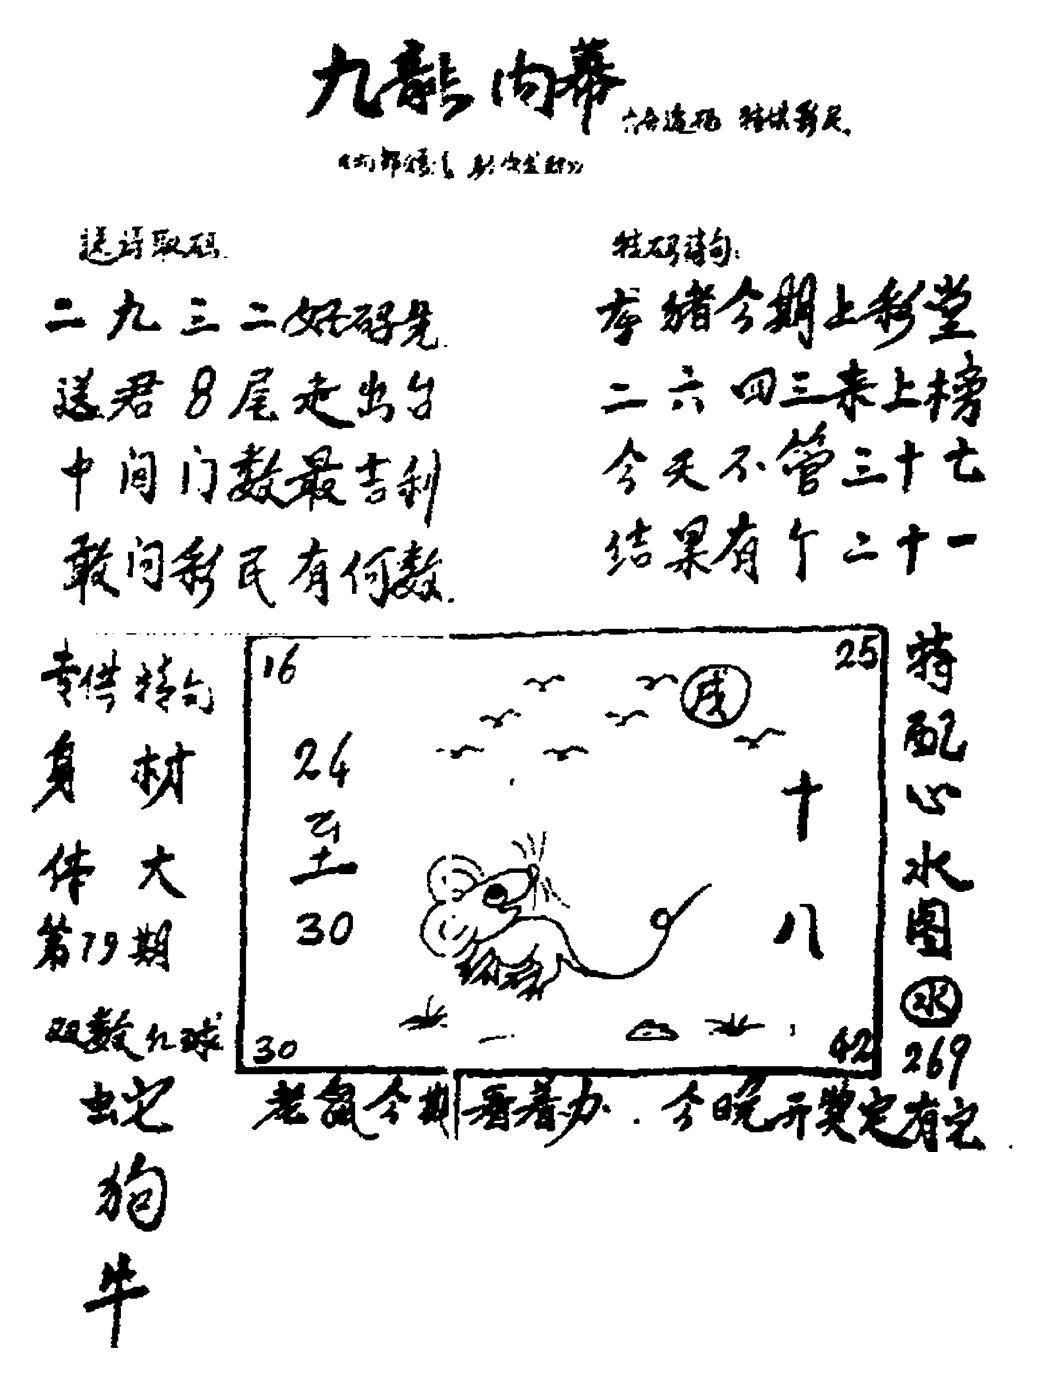 九龍内幕
送诗取码
二九三二好码先
送君8尾走出台
中间门数最吉利
敢问彩民有何数
特码诗句:
猪今期上彩堂
二六四三来上榜
今天不管三十七
结果有个二十一
专供特句
身材
体大
第79期
双数红球
蛇
狗
牛
16
25
24
至
30
十
八
30
42
特配心水图
水
269
老鼠今期看着办.今晚开奖定有它